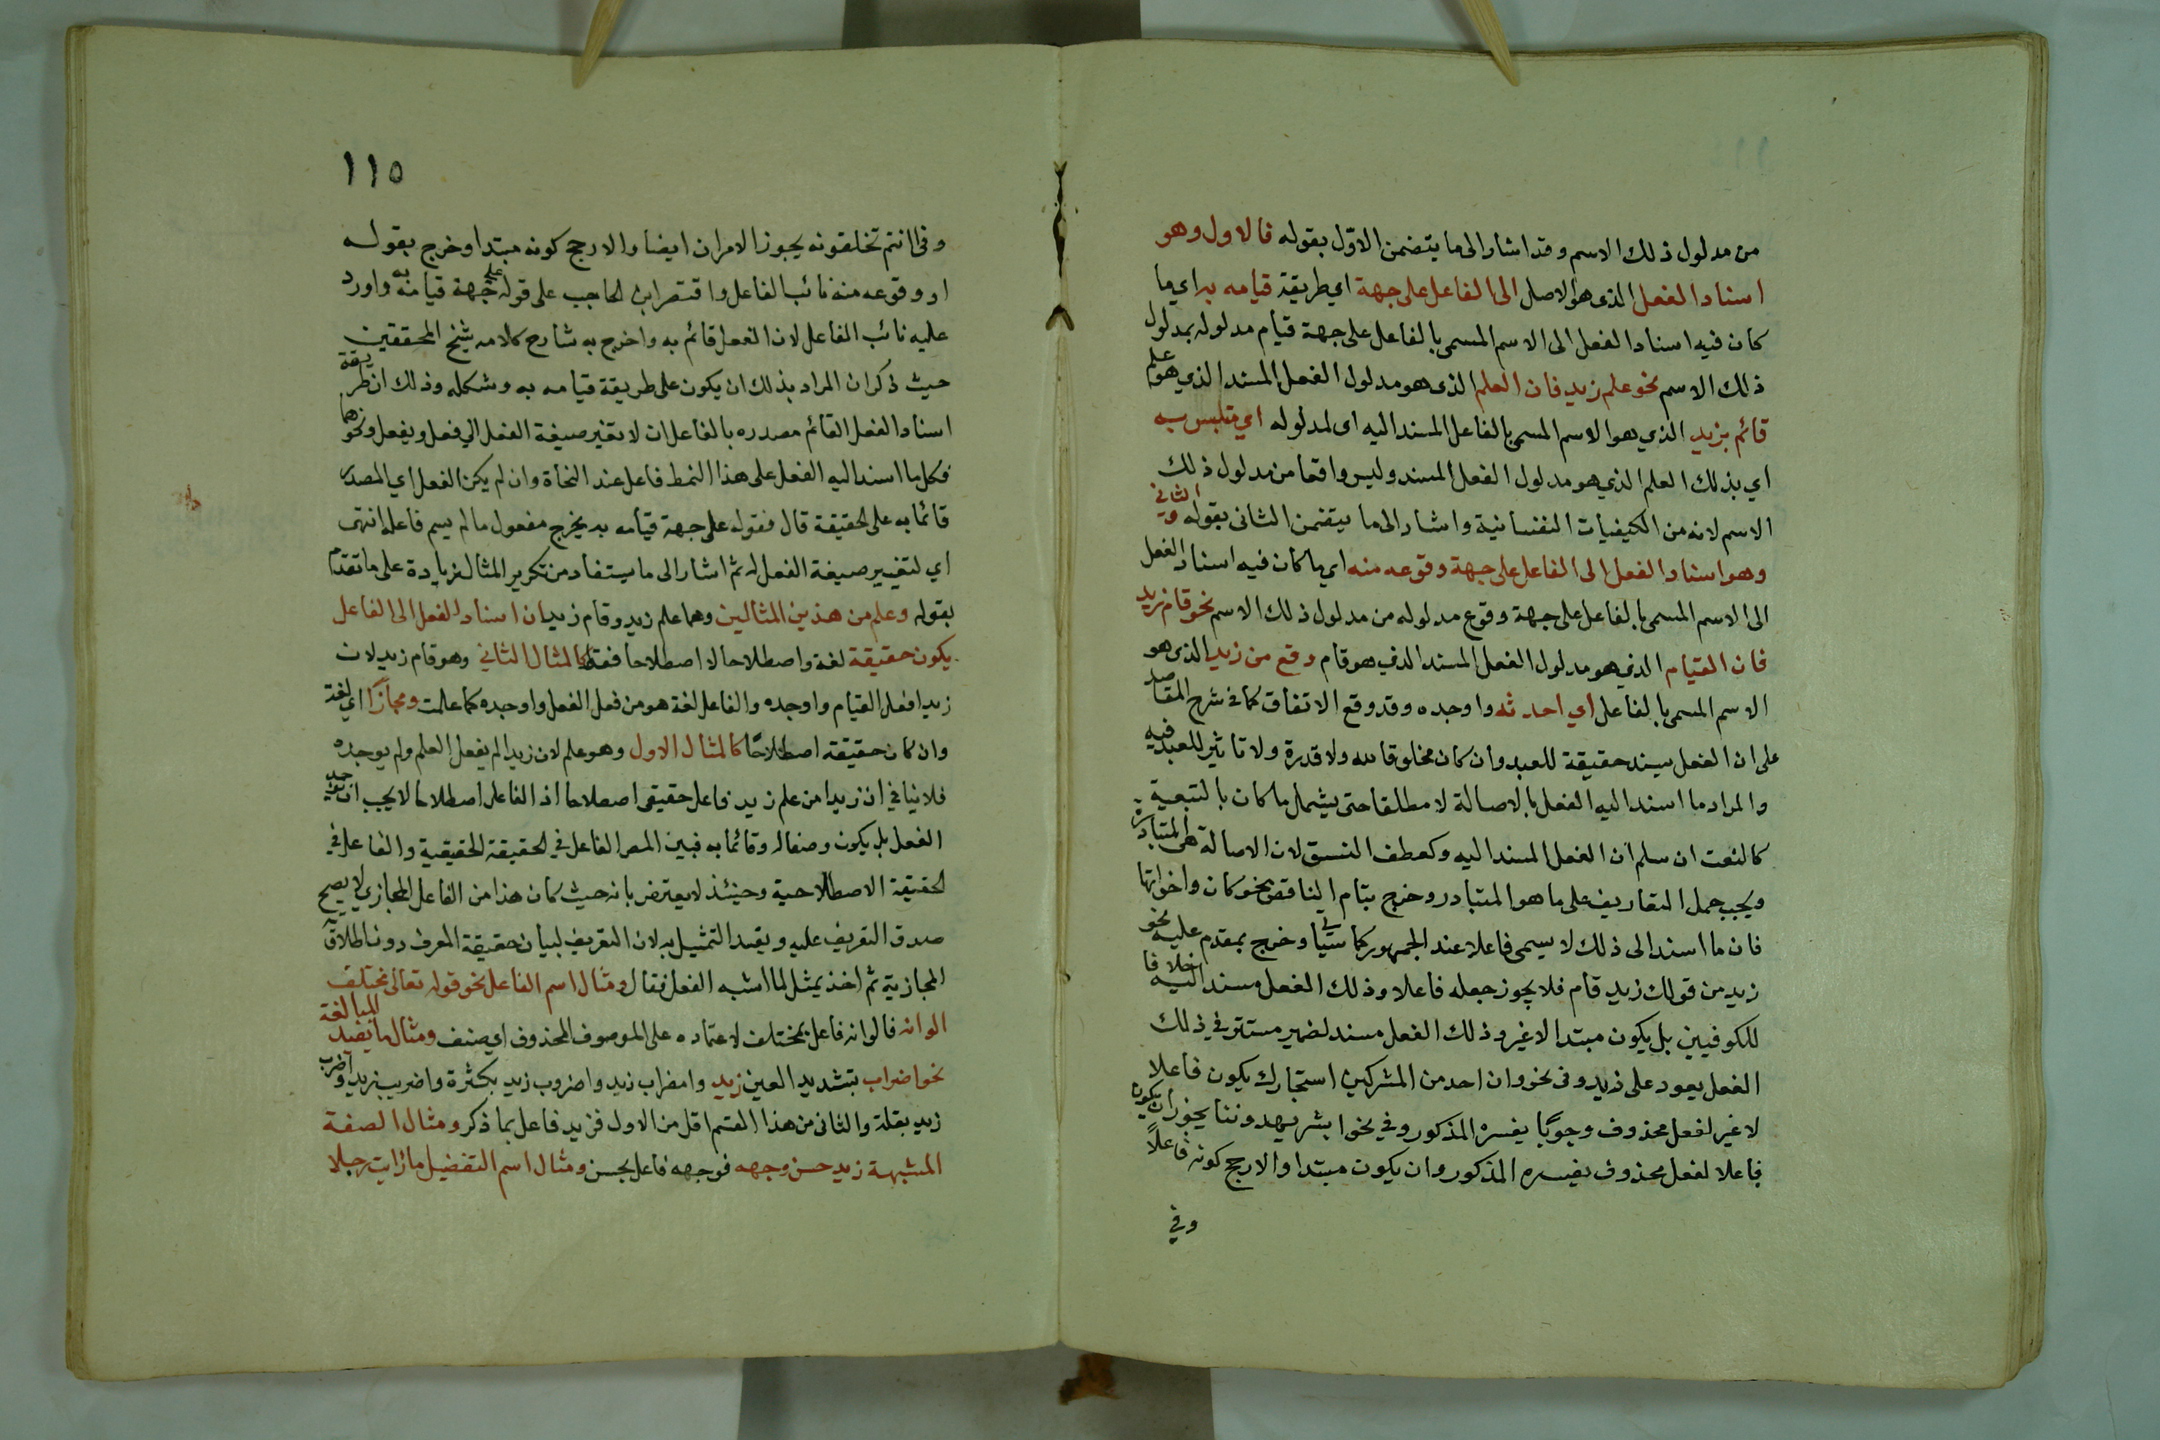 من مدلول ذلك الاسم وقد اشار الى ما يتضمن الاوّل بقوله فالاول وهو
اسناد الفعل الذى هو الاصل الى الفاعل على جهة اي طريقة قيامه به اي ما
كان فيه اسناد الفعل الى الاسم المسمى بالفاعل على جهة قيام مدلوله بمدلول
ذلك الاسم نحو علم زيد فان العلم الذى هو مدلول الفعل المسند الذي هو علم
قائم بزيد الذي هو الاسم المسمى بالفاعل المسند اليه اى لمدلوله اي متلبس به
اي بذلك العلم الذي هو مدلول الفعل المسند وليس واقعا من مدلول ذلك
الاسم لانه من الكيفيات النفسانية واشار الى ما يتضمن الثانى بقوله والثاني
وهو اسناد الفعل الى الفاعل على جهة وقوعه منه اي ما كان فيه اسناد الفعل
الى الاسم المسمى بالفاعل على جهة وقوع مدلوله من مدلول ذلك الاسم نحو قام زيد
فان القيام الذي هو مدلول الفعل المسند الذي هو قام وقع من زيد الذى هو
الاسم المسمى بالفاعل اي احدثه واوجده وقد وقع الاتفاق كما في شرح المقاصد
على ان الفعل يسند حقيقة للعبد وان كان مخلوقا لله ولا قدرة ولا تاثير للعبد فيه
والمراد ما اسند اليه الفعل بالاصالة لا مطلقا حتى يشمل ما كان بالتبعية
كالنعت ان سلم ان الفعل المسند اليه وكعطف النسق لان الاصالة هى المتبادرة
ويجب حمل التعاريف على ما هو المتبادر وخرج بتام الناقص نحو كان واخواتها
فان ما اسند الى ذلك لا يسمى فاعلا عند الجمهور كما سيأتي وخرج بمقدم عليه نحو
زيد من قولك زيد قام فلا يجوز جعله فاعلا وذلك الفعل مسند اليه خلافا
للكوفيين بل يكون مبتدا لا غير وذلك الفعل مسند لضمير مستتر في ذلك
الفعل يعود على زيد وفى نحو وان احد من المشركين استجارك يكون فاعلا
لا غير لفعل محذوف وجوبًا يفسره المذكور وفي نحو ابشر يهدوننا يجوز ان يكون
فاعلا لفعل محذوف يفسره المذكور وان يكون مبتدا والارجح كونه فاعلاً
وفي
١١٥
وفى اانتم تخلقونه يجوز الامران ايضا والارجح كونه مبتدا وخرج بقوله
او وقوعه منه نائب الفاعل واقتصر ابن الحاجب على قوله على جهة قيامه به واورد
عليه نائب الفاعل لان الفعل قائم به واخرج به شارح كلامه شيخ المحققين
حيث ذكر ان المراد بذلك ان يكون على طريقة قيامه به وشكله وذلك ان طريقة
اسناد الفعل القائم مصدره بالفاعل ان لا يغير صيغة الفعل الي فعل ويفعل ونحوهما
فكل ما اسند اليه الفعل على هذا النمط فاعل عند النحاة وان لم يكن الفعل اي المصدر
قائما به على الحقيقة قال فقوله على جهة قيامه به يخرج مفعول ما لم يسم فاعله انتهى
اي لتغيير صيغة الفعل له ثم اشار الى ما يستفاد من تكرير المثال زيادة على ما تقدم
بقوله وعلم من هذين المثالين وهما علم زيد وقام زيد ان اسناد الفعل الى الفاعل
يكون حقيقة لغة واصطلاحا لا اصطلاحا فقط كالمثال الثاني وهو قام زيد لان
زيدا فعل القيام واوجده والفاعل لغة هو من فعل الفعل واوجده كما علمت ومجازًا اي لغة
وان كان حقيقة اصطلاحًا كالمثال الاول وهو علم لان زيدا لم يفعل العلم ولم يوجده
فلا ينافي ان زيدا من علم زيد فاعل حقيقى اصطلاحا اذ الفاعل اصطلاحا لا يجب ان يوجد
الفعل بل يكون وصفا له وقائما به فبين المص الفاعل في الحقيقة الحقيقية والفاعل في
الحقيقة الاصطلاحية وحينئذ لا يعترض بانه حيث كان هذا من الفاعل المجازي لا يصح
صدق التعريف عليه ويقيد التمثيل به لان التعريف لبيان حقيقة المعرف دون اطلاقه
المجازية ثم اخذ يمثل لما اشبه الفعل فقال ومثال اسم الفاعل نحو قوله تعالى مختلف
الوانه فالوانه فاعل بمختلف لاعتماده على الموصوف المحذوف اي صنف ومثال ما يفيد المبالغة
نحو اضراب بتشديد العين زيد وامضراب زيد واضروب زيد بكثرة واضريب زيد واضرب
زيد بقلة والثانى من هذا القسم اقل من الاول فزيد فاعل بما ذكر ومثال الصفة
المشبهة زيد حسن وجهه فوجهه فاعل بحسن ومثال اسم التفضيل ما رايت رجلا